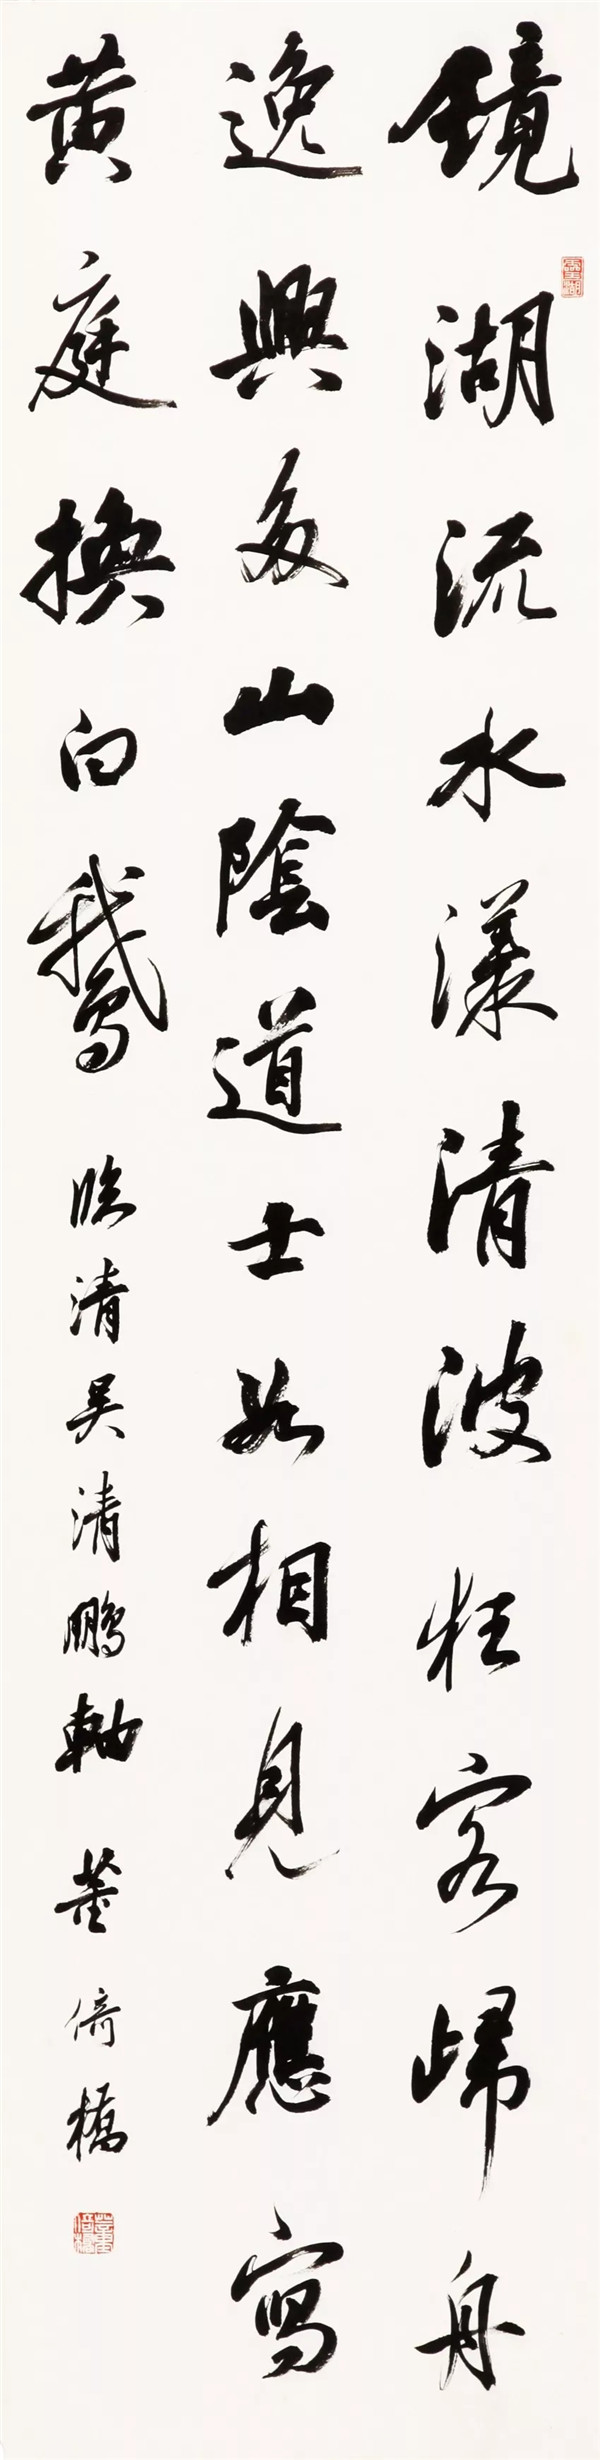 鏡湖流水漾清波狂客歸舟
逸興多山陰道士如相見應寫
黄庭換白鵝 臨清吴清鵬軸 董倚橋